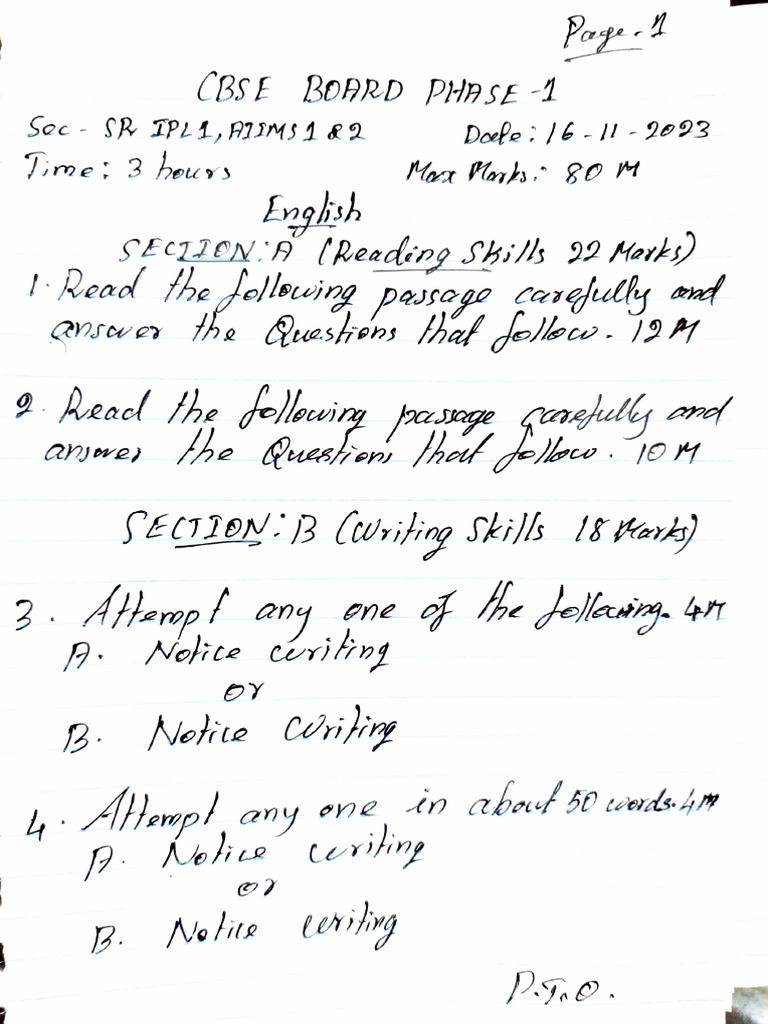 Page-1
CBSE BOARD PHASE-1
Sec - SR IPL1, AIIMS 1 & 2 Date: 16-11-2023
Time: 3 hours Max Marks: 80 M
English
SECTION: A (Reading Skills 22 Marks)
1. Read the following passage carefully and
answer the Questions that follow. 12M
2. Read the following passage carefully and
answer the Questions that follow. 10 M
SECTION: B (Writing Skills 18 Marks)
3. Attempt any one of the following. 4M
A. Notice writing
or
B. Notice Writing
4. Attempt any one in about 50 words. 4M
A. Notice writing
or
B. Notice writing
P.T.O.